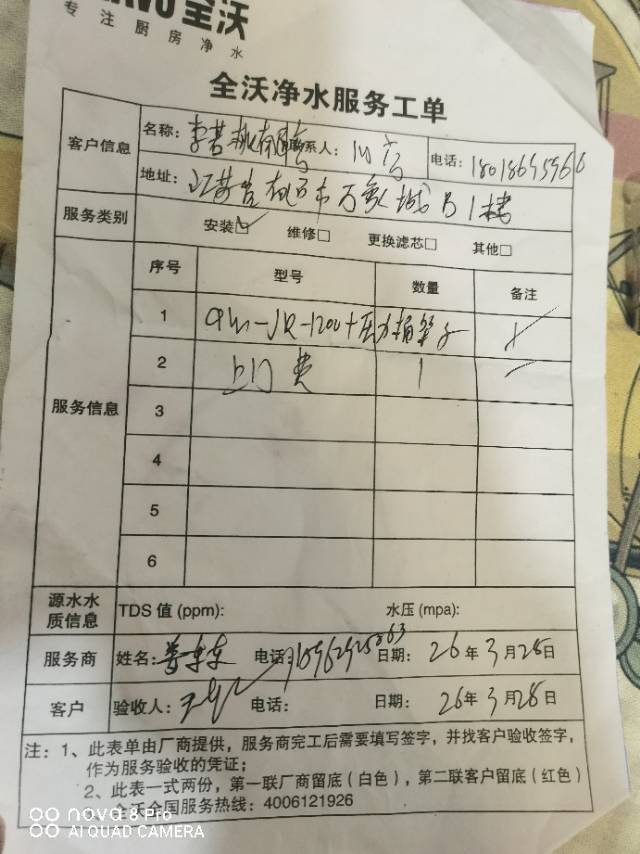 全沃
专注厨房净水
全沃净水服务工单
客户信息 名称: 联系人: 电话:
地址: 江苏省 市万象城B1楼
服务类别 安装☑ 维修□ 更换滤芯□ 其他□
服务信息 序号 型号 数量 备注
1 QW-JR-1200+压力桶
2 上门费 1
3
4
5
6
源水水质信息 TDS 值 (ppm): 水压 (mpa):
服务商 姓名: 电话: 日期: 26年3月28日
客户 验收人: 电话: 日期: 26年3月28日
注: 1、此表单由厂商提供，服务商完工后需要填写签字，并找客户验收签字，
作为服务验收的凭证；
2、此表一式两份，第一联厂商留底（白色），第二联客户留底（红色）
全沃全国服务热线: 4006121926
nova 8 Pro
AI QUAD CAMERA